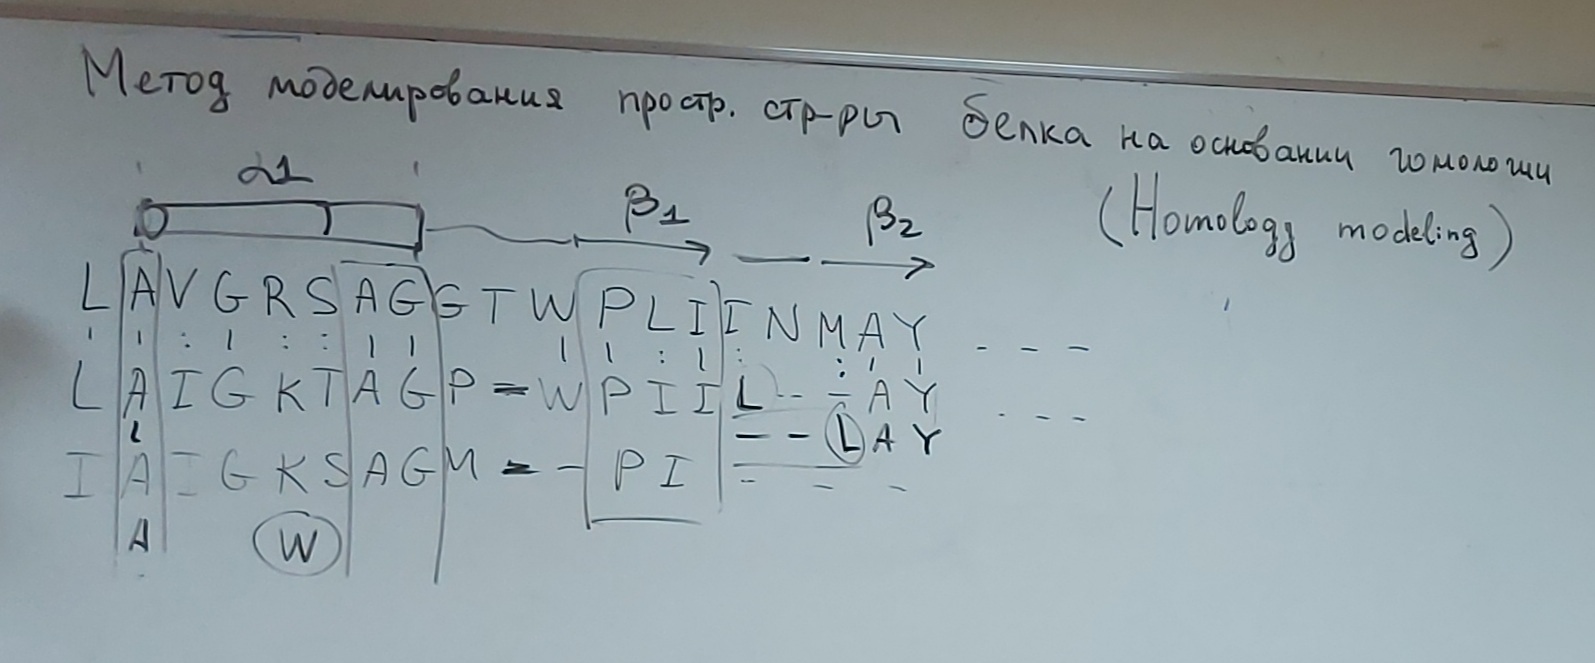 Метод моделирования простр. стр-ры белка на основании гомологии
(Homology modeling)
α1 β1 β2
L A V G R S A G G T W P L I I N M A Y - - -
L A I G K T A G P = W P I I L - - - A Y - - -
- - L A Y
I A I G K S A G M = - P I - - -
A W